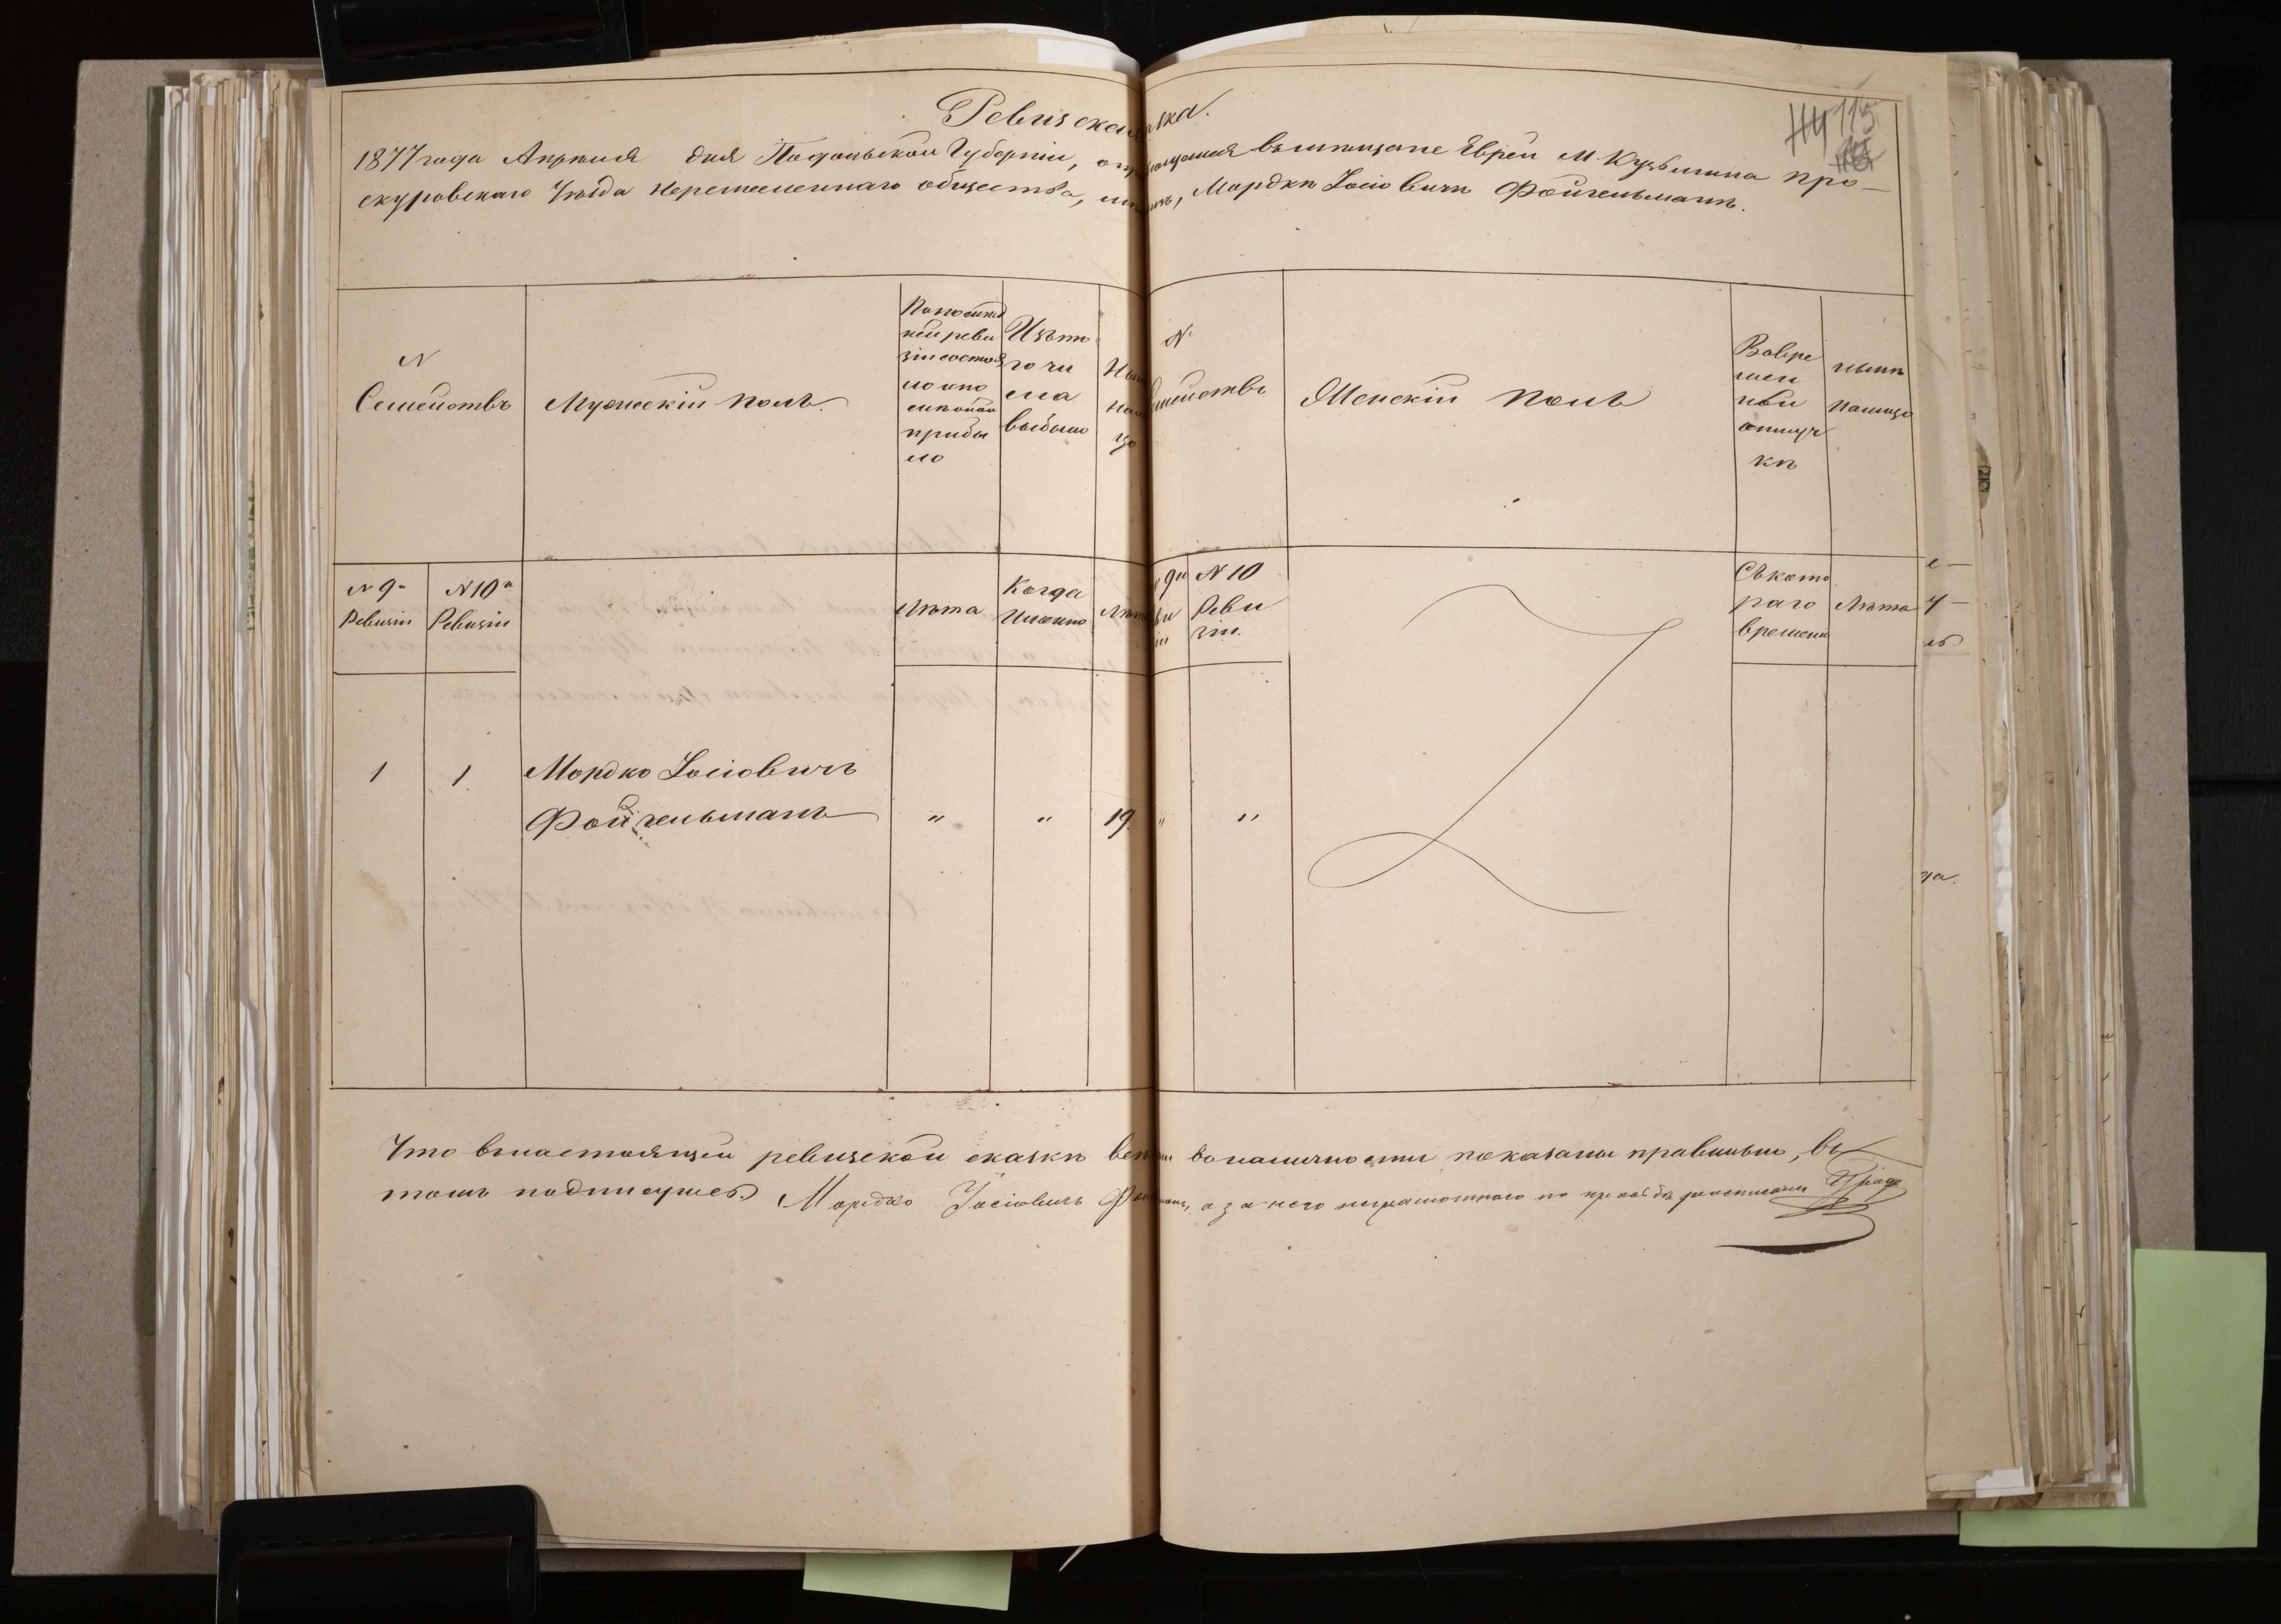 Ревизская сказка.
115
1877 года Апрѣля дня Подольской Губерніи, о въ мѣщане Еврей М. Кузьмина Про-
скуровскаго Уѣзда Перечисленнаго общества, Мордкѣ Іосіовичѣ Фойгельманѣ.
N Семействъ
Мужескій полъ.
По послѣд ней реви зіи состоя ло и по слѣ оной прибы ло
Изъ то го чи сла выбыло
N Семействъ
Женскій полъ
Во вре мен ной отлуч кѣ
нынѣ на лицо
N 9й Ревизіи
N 10й Ревизіи
Лѣта
Когда Именно
Лѣта
N 10 Реви зіи.
Съ кото раго времени
Лѣта
1 1 Мордко Іосіовичъ
Фойгельманъ " " 19 " "
Что въ настоящей ревизской сказкѣ всѣ въ наличности показаны правильно, въ
томъ подписуюсь Мордко Іосіовичъ а за него неграмотнаго по прозьбѣ росписался